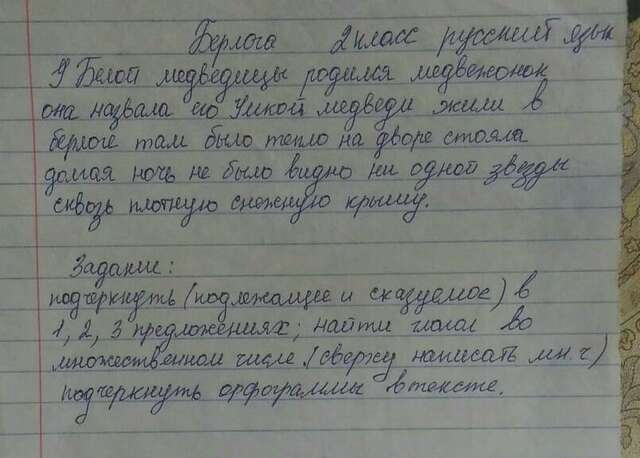 Берлога 2 класс русский язык
У Белой медведицы родился медвежонок
она назвала его Умкой медведи жили в
берлоге там было тепло на дворе стояла
долгая ночь не было видно ни одной звезды
сквозь плотную снежную крышу.
Задание:
подчеркнуть (подлежащее и сказуемое) в
1, 2, 3 предложениях; найти глагол во
множественном числе. (сверху написать мн. ч)
подчеркнуть орфограммы в тексте.